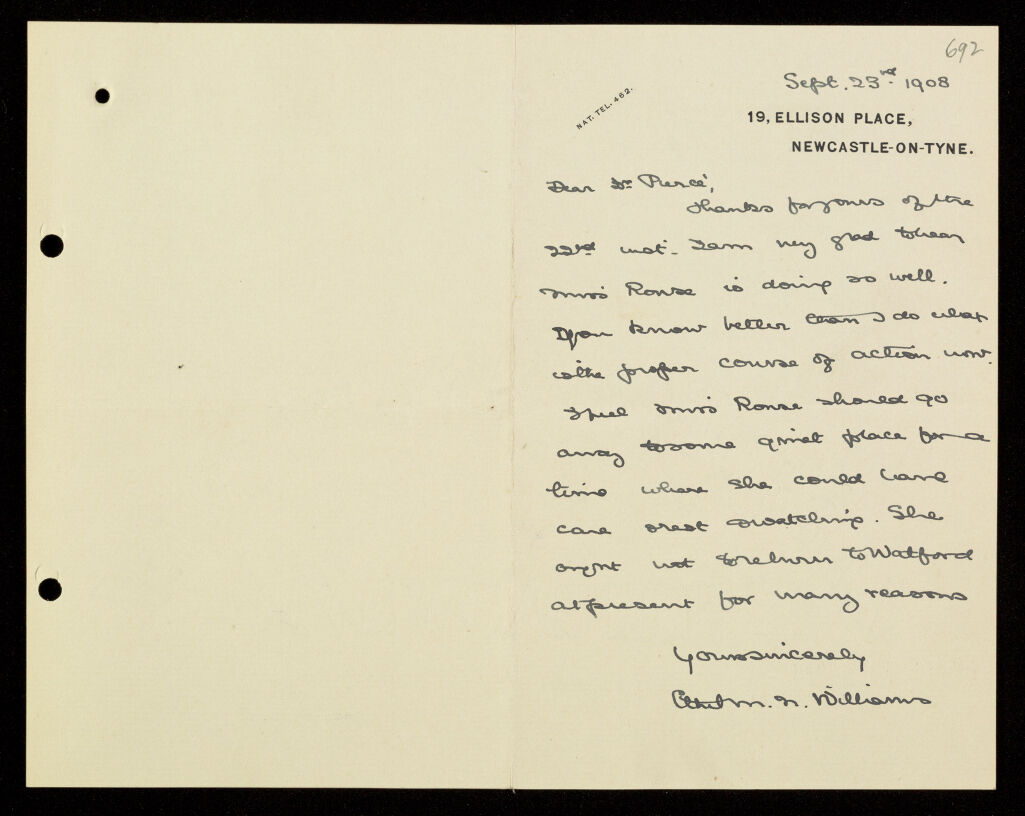 692
Sept. 23rd. 1908
NAT. TEL. 462.
19, ELLISON PLACE,
NEWCASTLE-ON-TYNE.
Dear Dr Pierce,
Thanks for yours of the
22nd inst. I am very glad to hear
Miss Rowse is doing so well.
You know better than I do what
is the proper course of action now.
I feel Miss Rowse should go
away to some quiet place for a
time where she could have
care & rest & watching. She
ought not to return to Watford
at present for many reasons
Yours sincerely
Ethel M. N. Williams